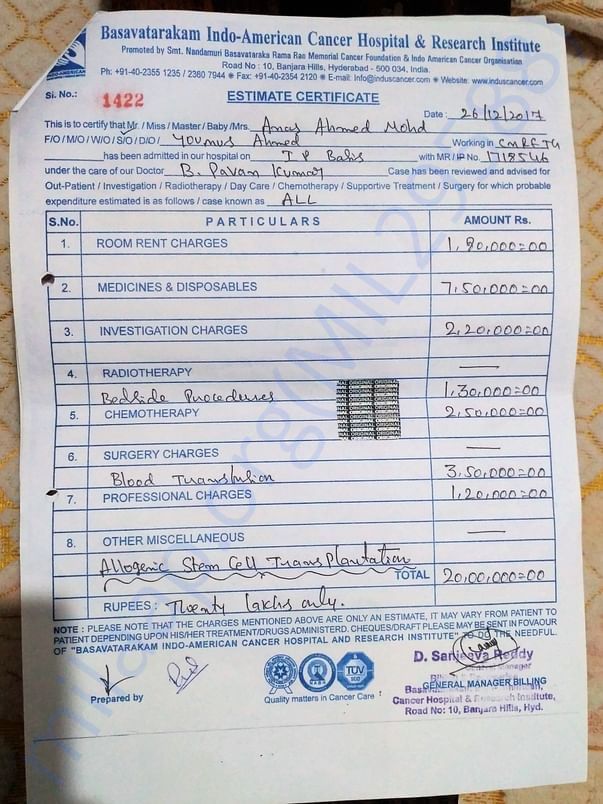 Basavatarakam Indo-American Cancer Hospital & Research Institute
Promoted by Smt. Nandamuri Basavataraka Rama Rao Memorial Cancer Foundation & Indo American Cancer Organisation
Road No : 10, Banjara Hills, Hyderabad - 500 034, India.
Ph: +91-40-2355 1235 / 2360 7944 ✱ Fax: +91-40-2354 2120 ✱ E-mail: Info@induscancer.com ✱ Website: www.induscancer.com
INDO-AMERICAN
Sl. No.: 1422
ESTIMATE CERTIFICATE
Date : 26/12/2017
This is to certify that Mr. / Miss / Master / Baby / Mrs. Anas Ahmed Mohd
F/O / M/O / W/O / S/O / D/O / Younus Ahmed Working in
has been admitted in our hospital on I P Balis with MR / IP No. 1718546
under the care of our Doctor B. Pavan Kumar Case has been reviewed and advised for
Out-Patient / Investigation / Radiotherapy / Day Care / Chemotherapy / Supportive Treatment / Surgery for which probable
expenditure estimated is as follows / case known as ALL
S.No. PARTICULARS AMOUNT Rs.
1. ROOM RENT CHARGES 1,80,000=00
2. MEDICINES & DISPOSABLES 7,50,000=00
3. INVESTIGATION CHARGES 2,20,000=00
4. RADIOTHERAPY —
Bedside Procedures 1,30,000=00
5. CHEMOTHERAPY 2,50,000=00
6. SURGERY CHARGES —
Blood Transfusion 3,50,000=00
7. PROFESSIONAL CHARGES 1,20,000=00
8. OTHER MISCELLANEOUS —
Allogenic Stem Cell TransPlantation
TOTAL 20,00,000=00
RUPEES : Twenty lakhs only.
NOTE : PLEASE NOTE THAT THE CHARGES MENTIONED ABOVE ARE ONLY AN ESTIMATE, IT MAY VARY FROM PATIENT TO
PATIENT DEPENDING UPON HIS/HER TREATMENT/DRUGS ADMINISTERD. CHEQUES/DRAFT PLEASE MAY BE SENT IN FOVAOUR
OF "BASAVATARAKAM INDO-AMERICAN CANCER HOSPITAL AND RESEARCH INSTITUTE" TO DO THE NEEDFUL.
D. Sanjeeva Reddy
General Manager
GENERAL MANAGER BILLING
Cancer Hospital & Research Institute,
Road No: 10, Banjara Hills, Hyd.
Prepared by
Quality matters in Cancer Care
TÜV
ORIGINAL